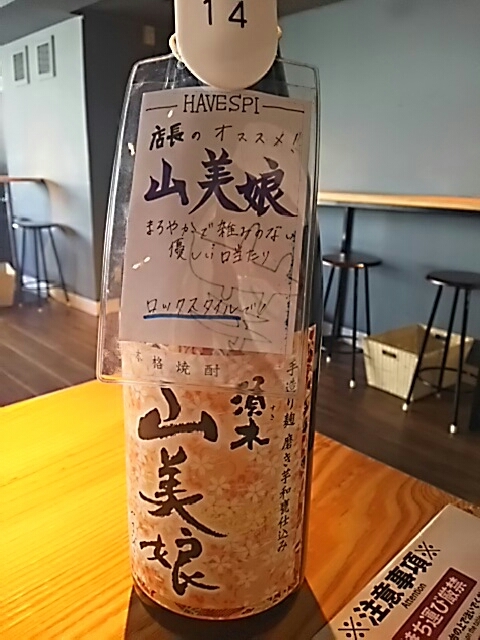 14
HAVESPI
店長のオススメ!
山美娘
まろやかで雑みのない
優しい口当たり
ロックスタイルで!!
本格焼酎
須木
すき
山美娘
手造り麹 磨き芋和甕仕込み
※注意事項※
Attention
お遊び厳禁